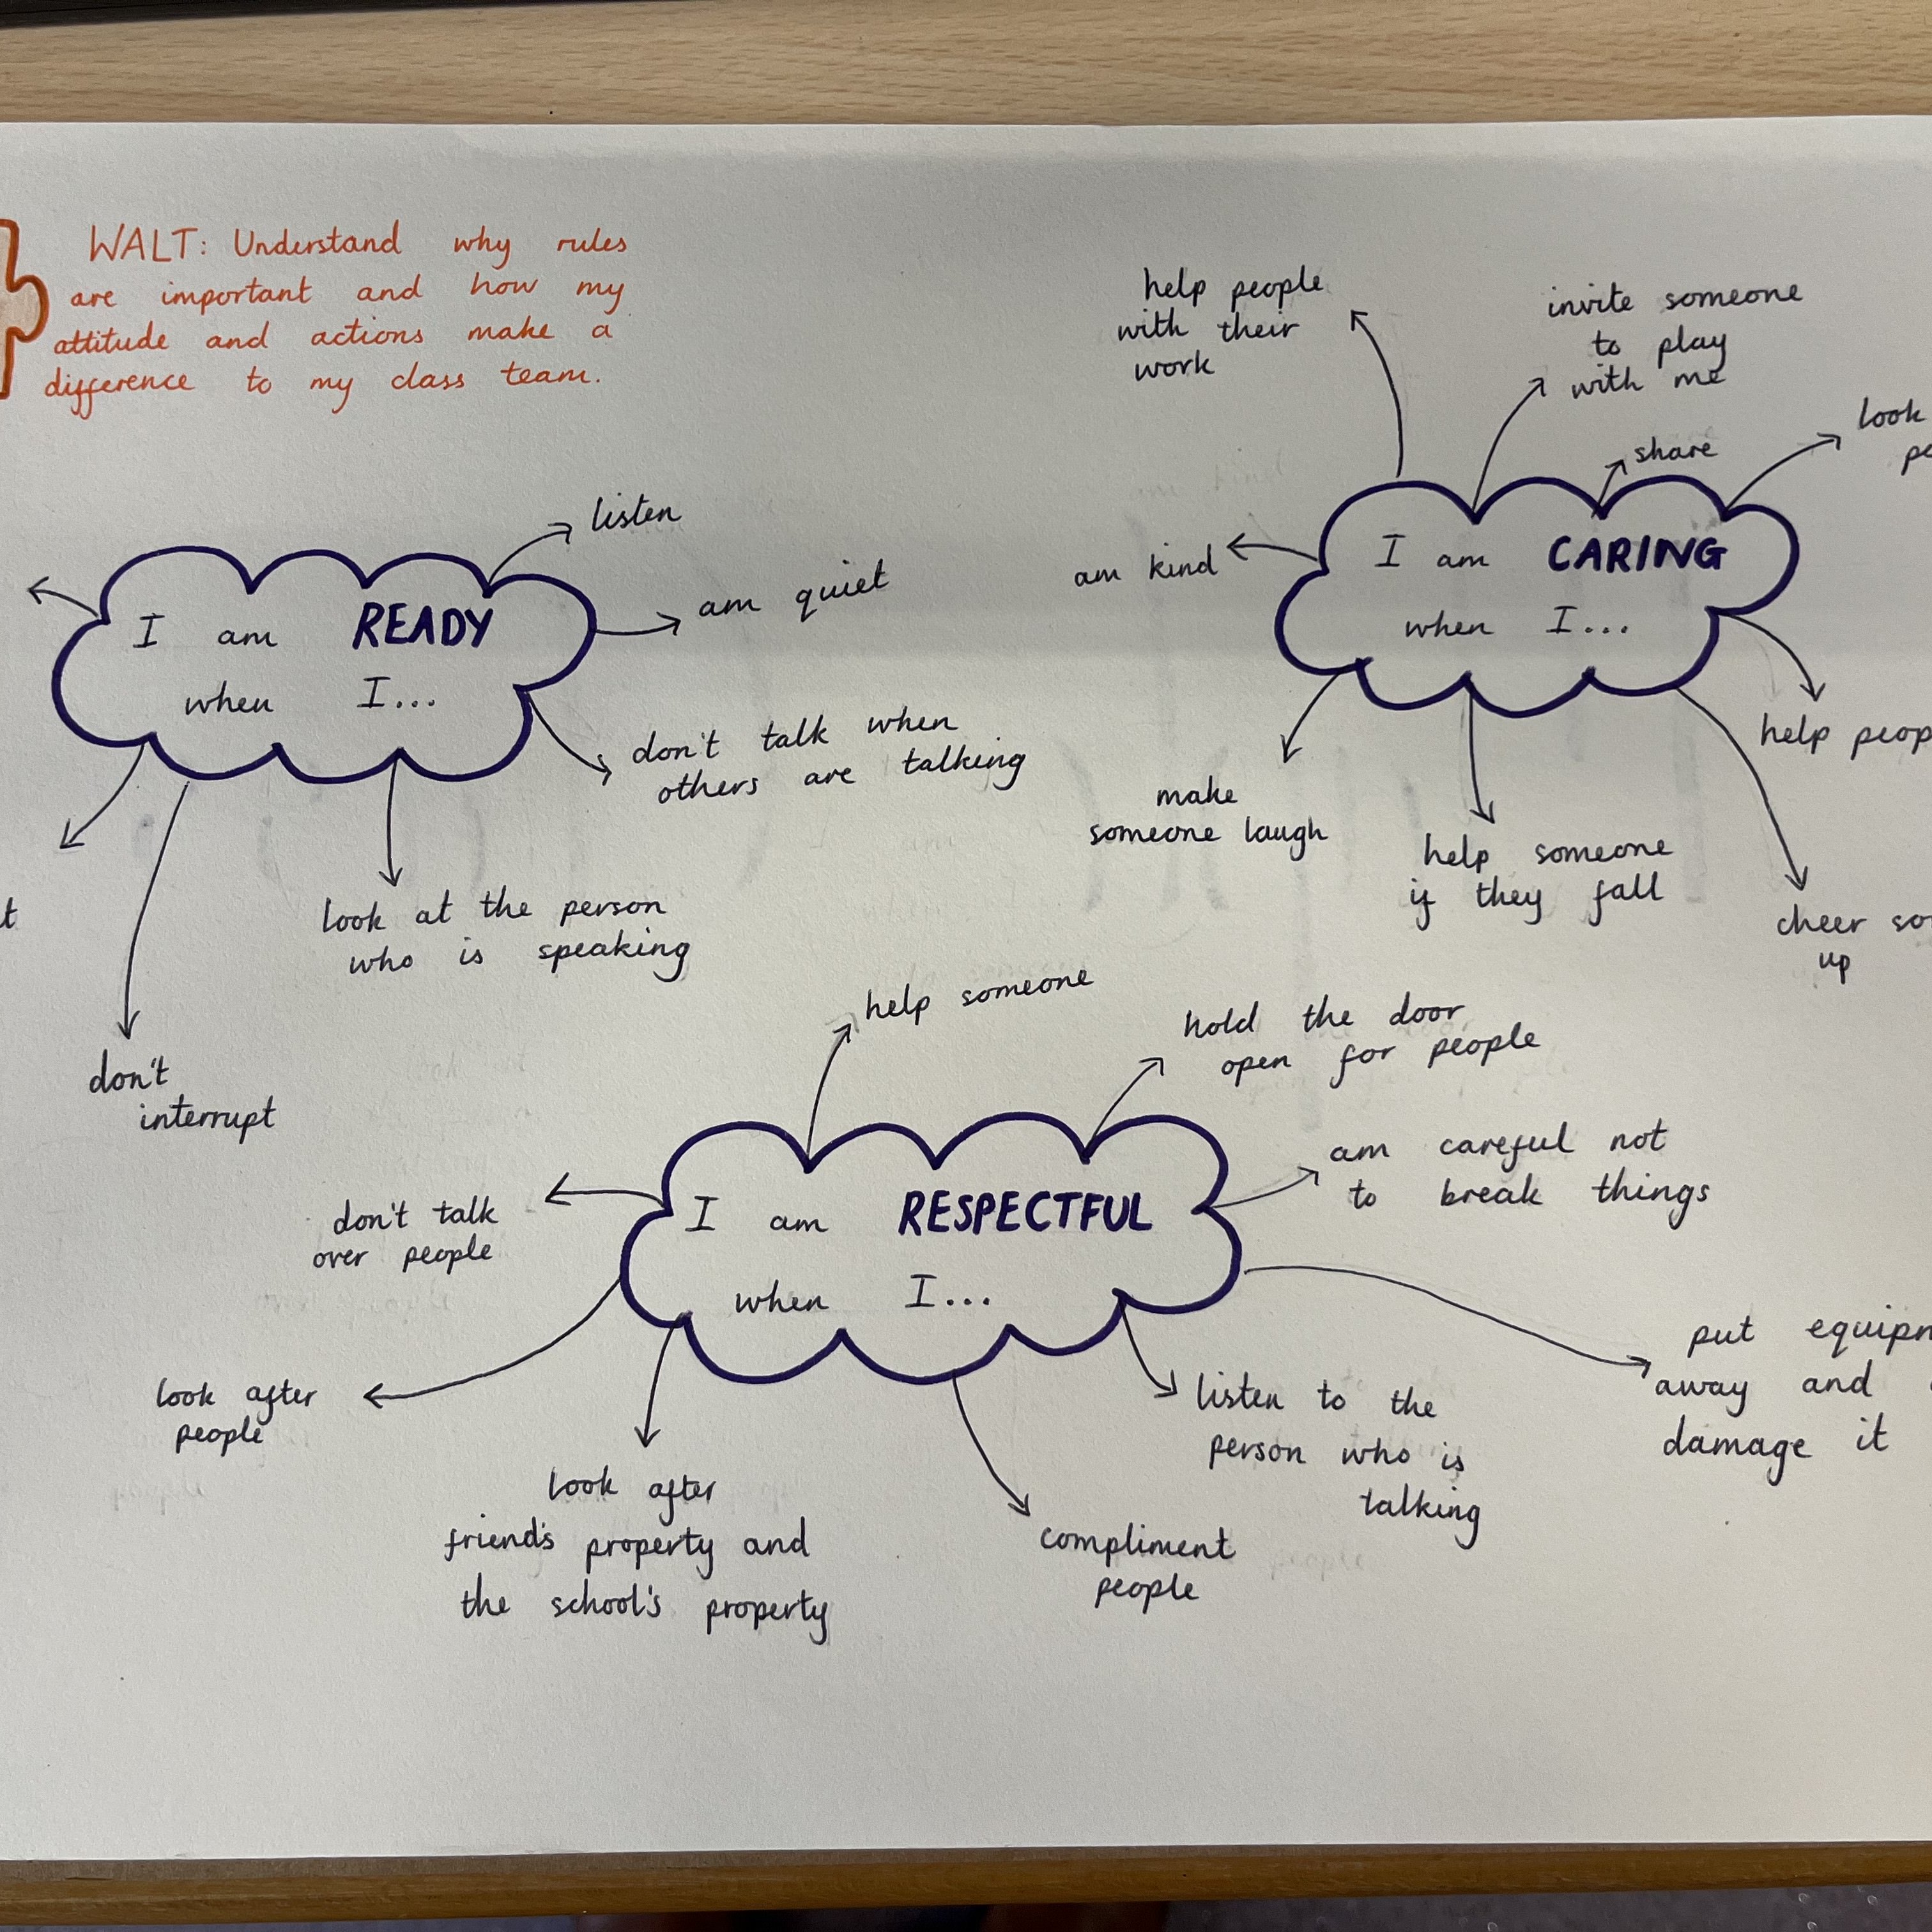 WALT: Understand why rules
are important and how my
attitude and actions make a
difference to my class team.
I am READY
when I...
listen
am quiet
don't talk when
others are talking
look at the person
who is speaking
don't
interrupt
I am CARING
when I...
help people
with their
work
invite someone
to play
with me
share
look
am kind
make
someone laugh
help someone
if they fall
help
cheer
up
I am RESPECTFUL
when I...
help someone
hold the door
open for people
am careful not
to break things
put
away and
damage it
listen to the
person who is
talking
compliment
people
look after
friend's property and
the school's property
look after
people
don't talk
over people